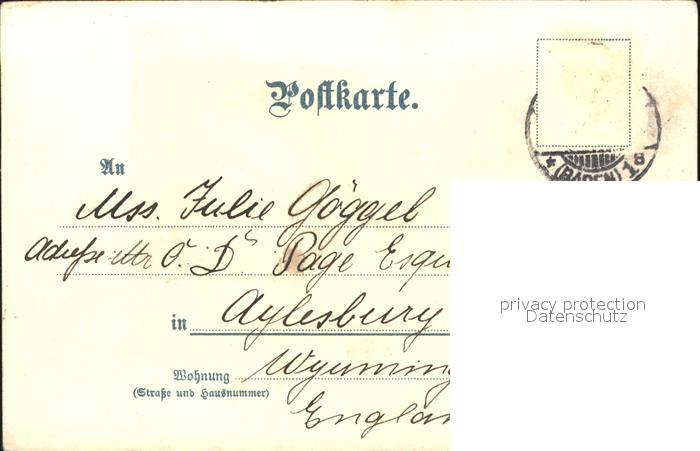 Postkarte.
* (BADEN) 18
An
Mss. Julie Göggel
Adresse Mr O. D. Page Esqu
in Aylesbury
Wohnung Wyuming
(Straße und Hausnummer)
England
privacy protection
Datenschutz